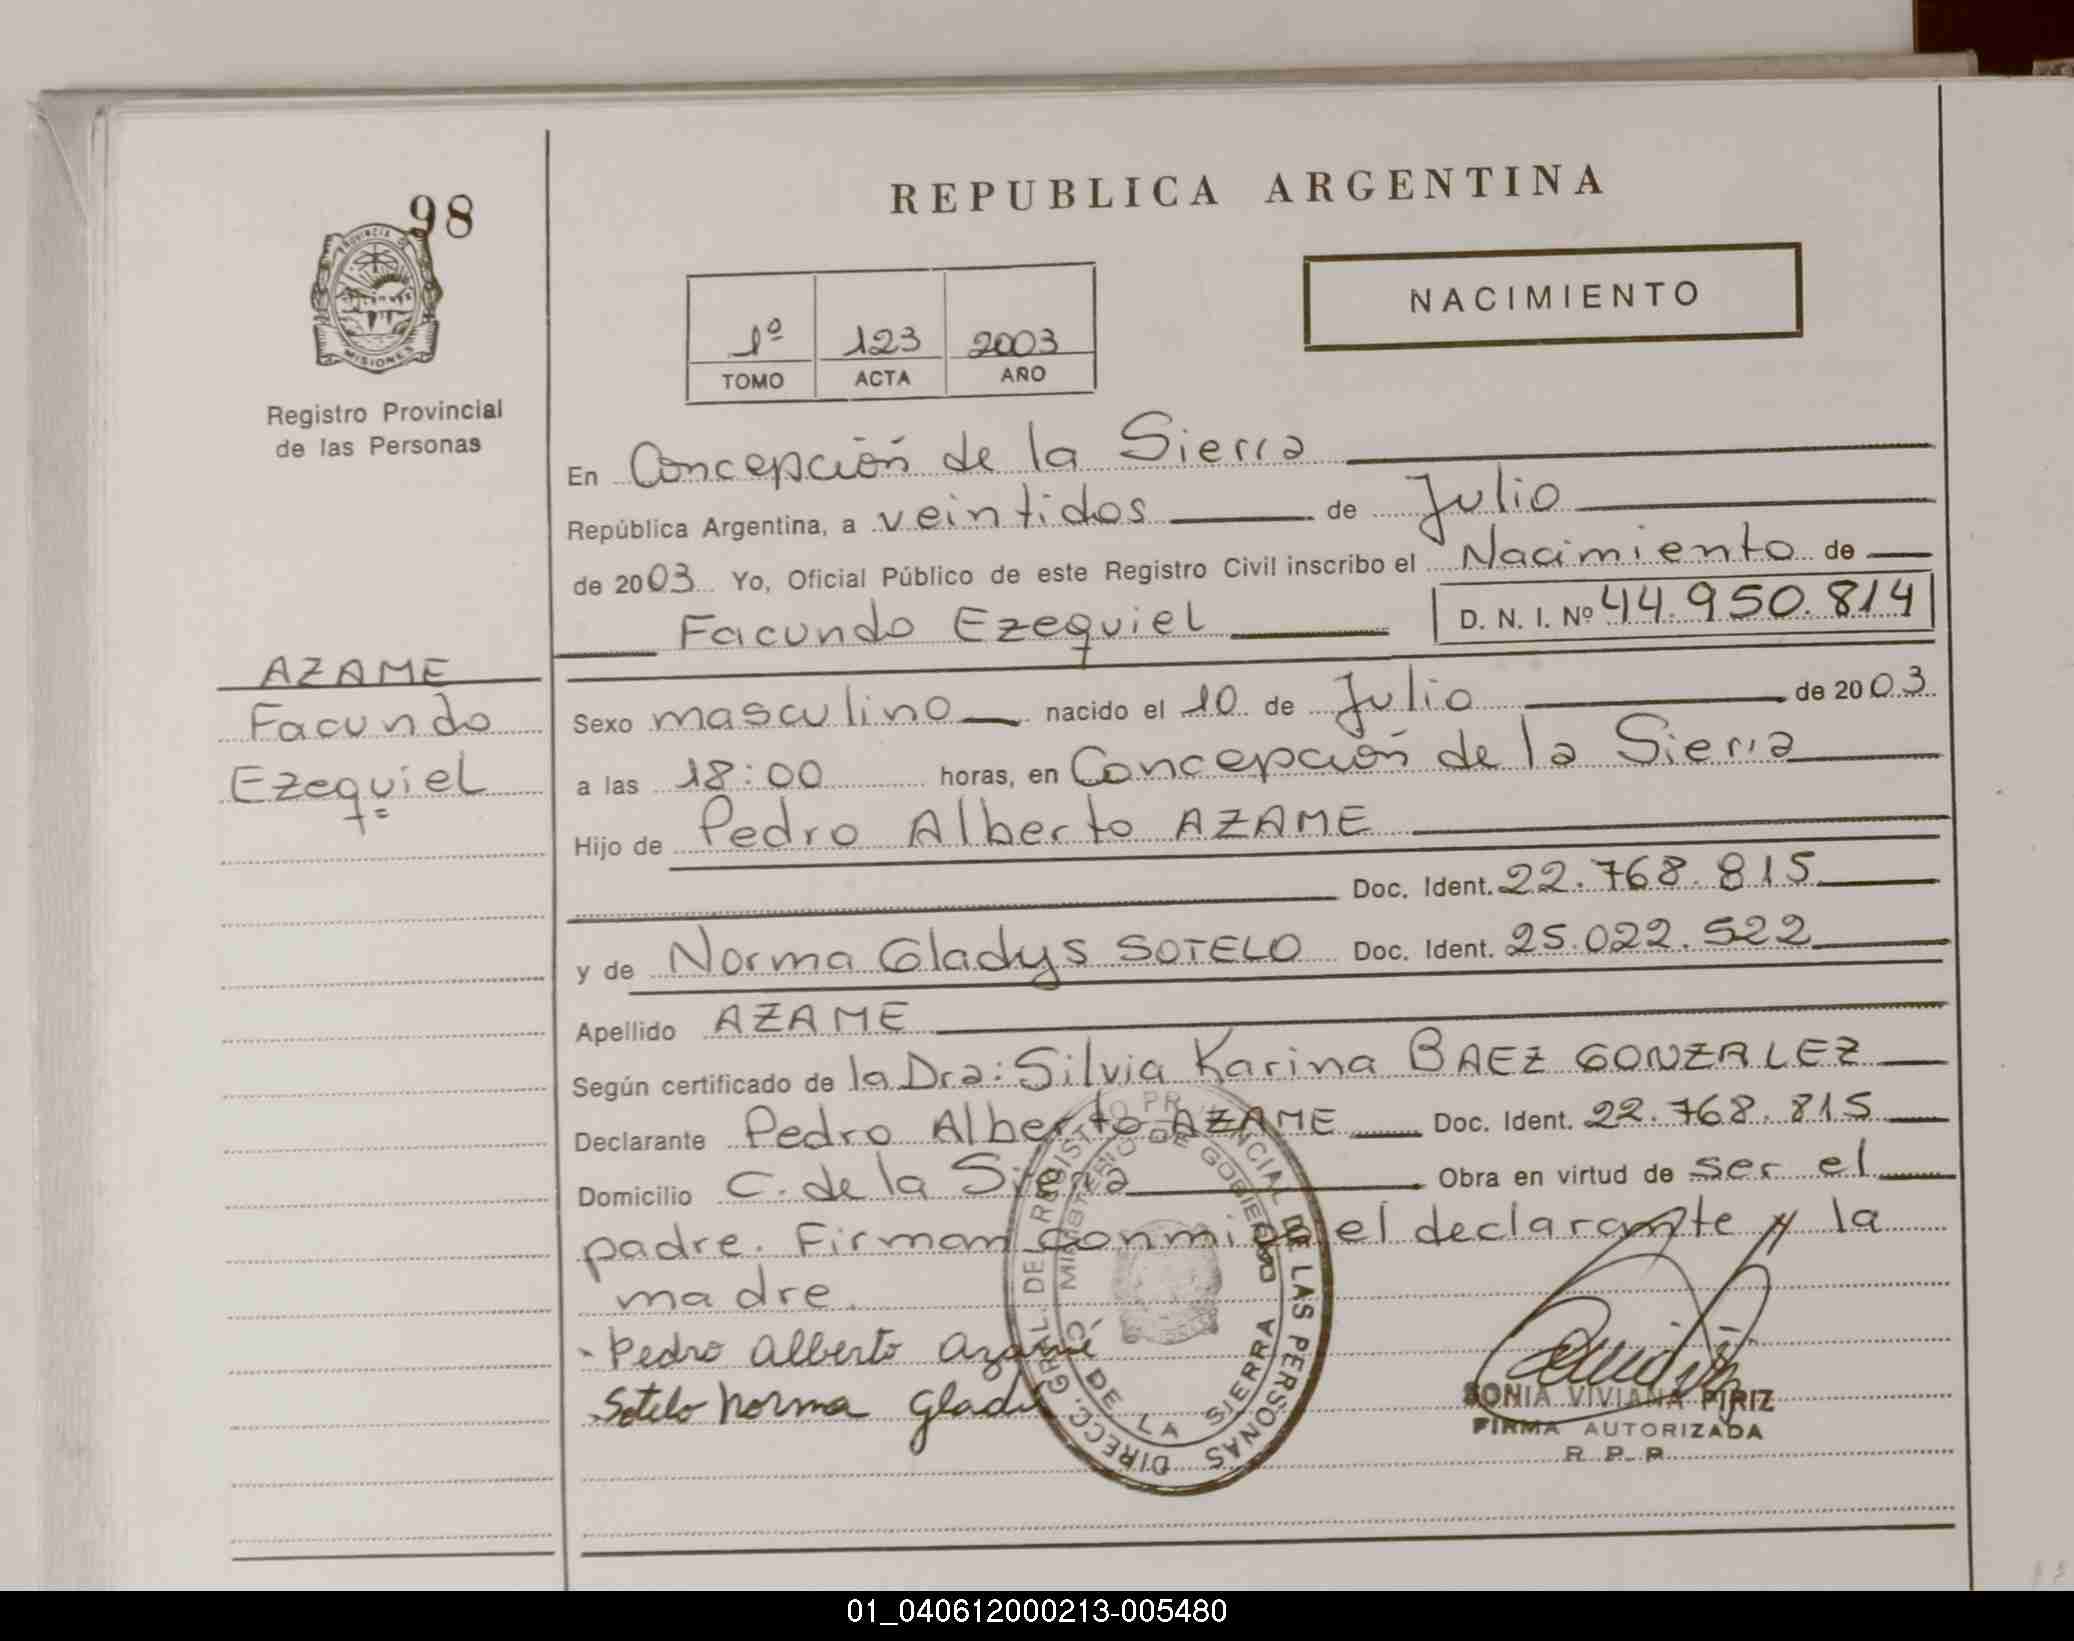 98
PROVINCIA DE
MISIONES
Registro Provincial
de las Personas
AZAME
Facundo
Ezequiel
REPUBLICA ARGENTINA
NACIMIENTO
1º 123 2003
TOMO ACTA AÑO
En Concepción de la Sierra
República Argentina, a veintidos de Julio
de 2003 Yo, Oficial Público de este Registro Civil inscribo el Nacimiento de
Facundo Ezequiel D. N. I. Nº 44.950.814
Sexo masculino nacido el 10 de Julio de 2003
a las 18:00 horas, en Concepción de la Sierra
Hijo de Pedro Alberto AZAME
Doc. Ident. 22.768.815
y de Norma Gladys SOTELO Doc. Ident. 25.022.522
Apellido AZAME
Según certificado de la Dra: Silvia Karina BAEZ GONZALEZ
Declarante Pedro Alberto AZAME Doc. Ident. 22.768.815
Domicilio C. de la Sierra Obra en virtud de ser el
padre. Firman conmigo el declarante y la
madre.
- Pedro Alberto Azamé
Sotelo Norma Gladi
DIRECC. GRAL. DE REGISTRO PROVINCIAL DE LAS PERSONAS
MINISTERIO DE GOBIERNO
C. DE LA SIERRA
SONIA VIVIANA PIRIZ
FIRMA AUTORIZADA
R. P. P.
01_040612000213-005480